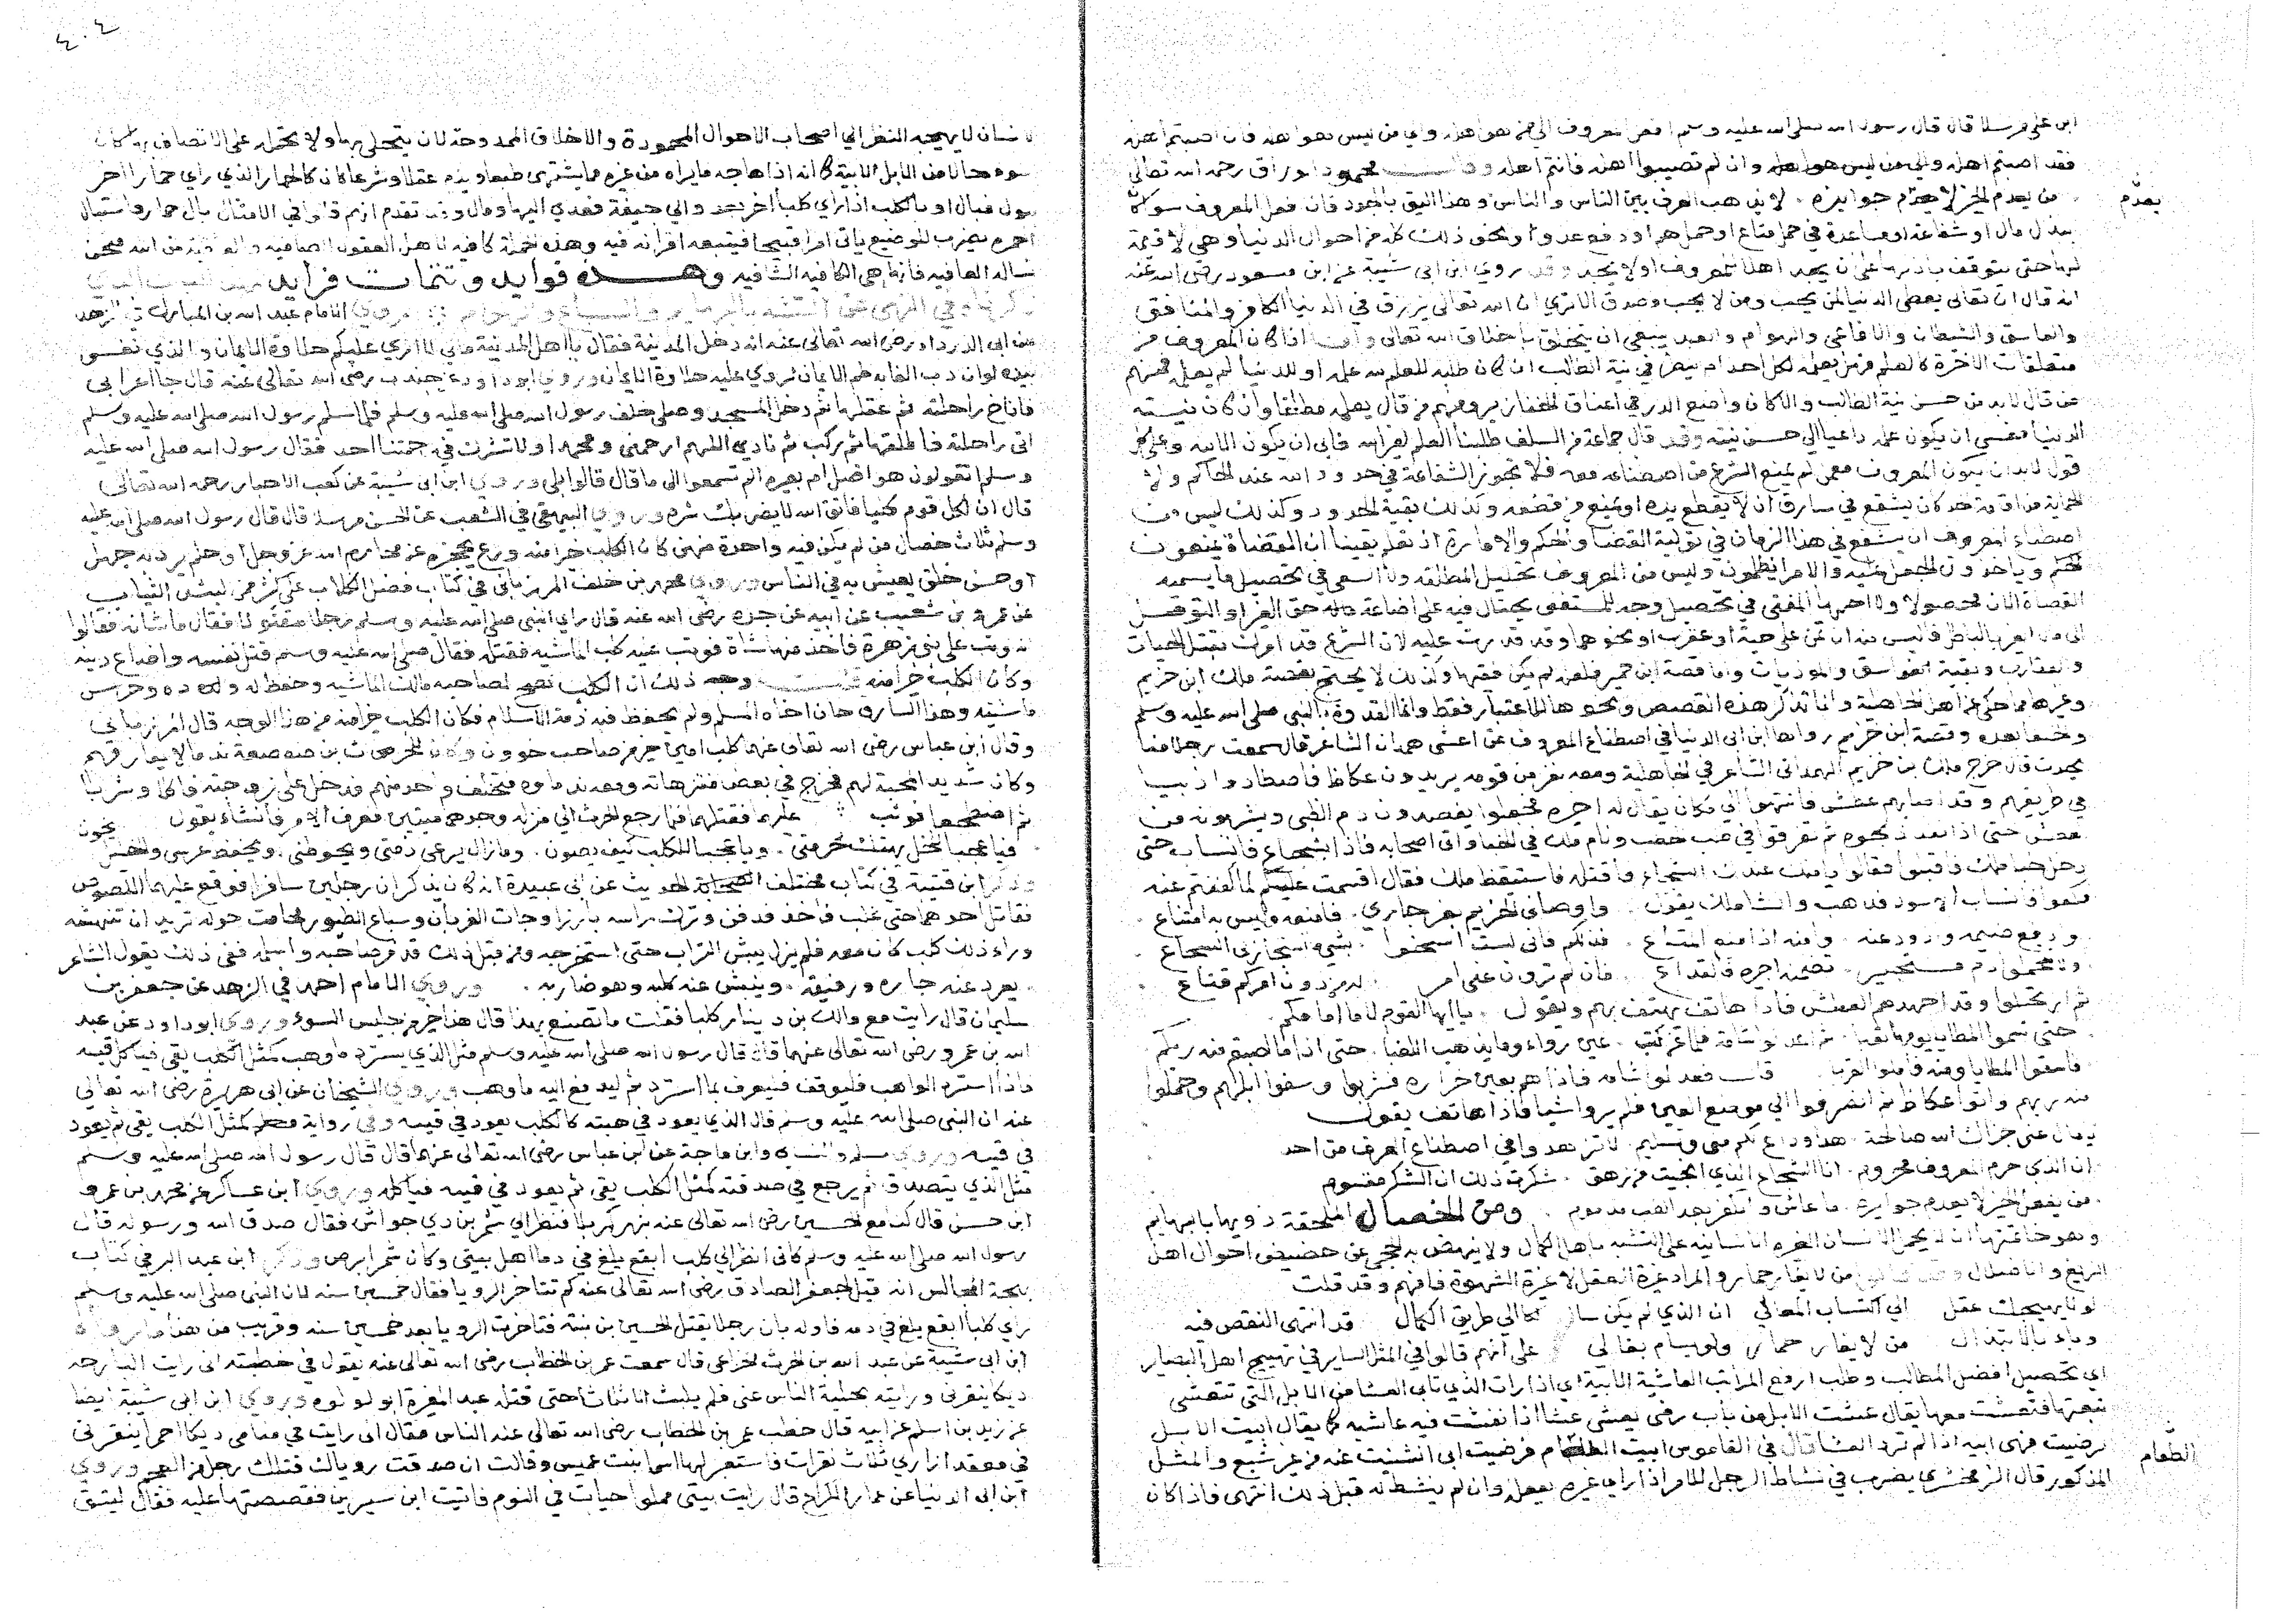 ابن علي مرسلا قال قال رسول الله صلى الله عليه وسلم افعل المعروف الى من هو اهله والى من ليس هو اهله فان اصبتم اهله
فقد اصبتم اهله وان لم تصيبوا اهله فانتم اهله محمود الوراق رحمه الله تعالى
من يعدم الخير لا يعدم جوايزه لا يذهب العرف بين الناس والناس وهذا اليق بالجود فان فعل المعروف سواء
يعدم
ببذل مال او شفاعة او مساعدة في حمل متاع او دفع عدو او نحو ذلك كله من احوال الدنيا وهي لا قيمة
لها حتى يتوقف على ان يجد اهلا للمعروف اولا يجد وقد روى ابن ابي شيبة عن ابن مسعود رضي الله عنه
انه قال ان الله تعالى يعطي الدنيا لمن يحب ومن لا يحب وصدق الا ترى ان الله تعالى يرزق في الدنيا الكافر والمنافق
والفاسق والشيطان والافاعي والهوام والعبد ينبغي ان يتخلق باخلاق الله تعالى اذا كان المعروف من
متعلقات الاخرة كالعلم فهل يعمله لكل احد ام ينظر في نية الطالب ان كان طلبه للعلم لله علمه او للدنيا لم يعلمه فمنهم
من قال لا بد من حسن نية الطالب والا كان واضع الدر في اعناق الخنازير ومنهم من قال يعلمه مطلقا وان كان نيته
الدنيا فعسى ان يكون علمه داعيا الى حسن نيته وقد قال جماعة من السلف طلبنا العلم لغير الله فابى ان يكون الا لله وعلى كل
قول لا بد ان يكون المعروف مما لم يمنع الشرع من اصطناعه معه فلا تجوز الشفاعة في حدود الله عند الحاكم ولا
كان يشفع في سارق ان لا يقطع يده او يمنع من قطعه وكذلك بقية الحدود وكذلك ليس من
اصطناع المعروف ان يشفع في هذا الزمان في تولية القضاء والحكم والامارة اذ نعلم يقينا ان القضاة
والامراء يظلمون وليس من المعروف تحليل المطلقة ولا السعي في تحصيل ما يسميه
القضاة الان محصولا ولا المفتي في تحصيل وجه للمستفتي يحتال فيه على اضاعة حق الغير او التوصل
الى مال الغير بالباطل وليس منه ان على حية او عقرب او نحوها وقد قدرت عليه لان الشرع قد امرك بقتل الحيات
والعقارب وبقية الفواسق والموذيات واما قصة ابن حمير فلعله لم يكن فقيها ولذلك لا يحتج بقصة مالك ابن خزيم
وغيرها مما حكي عن اهل الجاهلية وانما تذكر هذه القصص ونحوها للاعتبار فقط وانما القدوة بالنبي صلى الله عليه وسلم
وقصة ابن خزيم رواها ابن ابي الدنيا في اصطناع المعروف عن اعشى همدان الشاعر قال سمعت رجلا منا
يحدث قال خرج مالك بن خزيم الهمداني الشاعر في الجاهلية ومعه نفر من قومه يريدون عكاظ فاصطادوا ظبيا
في طريقهم وقد اصابهم عطش فانتهوا الى مكان يقال له اجيره فجعلوا يفصدون دم الظبي ويشربونه من
العطش حتى اذا نفد ذبحوه ثم تفرقوا في طلب حطب ونام مالك في الخباء واتى اصحابه فاذا بشجاع فانساب حتى
دخل خباء مالك فاقبلوا فقالوا يا مالك عندك الشجاع فاقتله فاستيقظ مالك فقال اقسمت عليكم لما كففتم عنه
فكفوا فانساب الاسود فذهب وانشا مالك يقول واوصاني الخزيم بعز جاري فامنعه وليس به امتناع
وادفع ضيمه واذود عنه وامنعه اذا منع امتناع فدى لكم ابي عنه تنحوا بشيء ما استجارني الشجاع
ولا تتحملوا دم مستجير تضمنه اجيره فالقداع فان لم ترون عني امر له من دون امركم قناع
ثم ارتحلوا وقد اجهدهم العطش فاذا هاتف يهتف بهم ويقول يا ايها القوم لا ماء امامكم
حتى تسوموا المطايا يومها التعبا ثم اعدلوا شامة فالماء عن كثب عين رواء وماء يذهب اللغبا حتى اذا ما اصبتم منه ريكم
فاسقوا المطايا ومنه فاملوا القربا قال فعدلوا شامه فاذا هم بعين خرارة فشربوا وسقوا ابلهم وحملوا
منه ريهم واتوا عكاظ ثم انصرفوا الى موضع العين فلم يروا شيا فاذا هاتف يقول
يا مال عني جزاك الله صالحة هذا وداع لكم مني وتسليم لا تزهدوا في اصطناع العرف من احد
ان الذي حرم المعروف محروم انا الشجاع الذي انجيت من رهق شكرت ذلك ان الشكر مقسوم
من يفعل الخير لا يعدم جوايزه ما عاش والكفر بعد العرف مذموم ومن الخصال الملحقة ذويها بالبهايم
وهو خاتمتها ان لا يحمل الانسان الغيرة الانسانية على التشبه باهل الكمال ولا ينهض به الحجر عن حضيض احوال اهل
الزيغ والضلال من لا يغار حمار والمراد غيرة العقل لا غيرة الشهوة فافهم وقد قلت
لو لا يهيجك عقل الى اكتساب المعالي ان الذي لم يكن سار الى طريق الكمال قد انتهى النقص فيه
وباء بالابتذال من لا يغار حمار ولو يسام بغالي على انهم قالوا في المثل الساير في تهييج اهل البصاير
اي تحصيل افضل المطالب وطلب ارفع المراتب العاشية تهيج الابية اي اذا رات الذي تابى العشا من الابل التي تتعشى
تبعتها فتعشت معها يقال عشت الابل من باب رضي يعشى عشا اذا تعشت فيه عاشية كما يقال ابيت الابل
رضيت فهي ابية اذا لم ترد العشا قال في القاموس ابيت الطعام كرضيت ابى انتهيت عنه من غير شبع والمثل
الطعام
المذكور قال الزمخشري يضرب في نشاط الرجل للامر اذا راى غيره يفعله وان لم ينشط له قبل ذلك انتهى فاذا كان
٤٠٤
الانسان لا يهيجه النظر الى اصحاب الاحوال المحمودة والاخلاق الممدوحة لان يتحلى بها ولا يحمله على الاتصاف بها كان
اسوء حالا من الابل الابية كما انه اذا هاجه ما يراه من غيره مما يشتهى طبعا ويذم عقلا وشرعا كان كالحمار الذي راى حمارا اخر
يبول فبال او كالكلب اذا راى كلبا اخر يعدو الى جيفة فعدى اليها ومال وقد تقدم انهم قالوا في الامثال بال حمار واستبال
احمره يضرب للوضيع ياتي امرا قبيحا فيتبعه اقرانه فيه وهذه الجملة كافية لاهل العقول الصافية والموفية من الله فنحن
نساله العافيه فانها هي الكافيه الشافيه وهذه فوايد وتتمات فرايد
في النهي عن التشبه بالبهايم والسباع والهوام روى الامام عبد الله بن المبارك في الزهد
عن ابي الدرداء رضي الله تعالى عنه انه دخل المدينة فقال يا اهل المدينة ما لي لا ارى عليكم حلاوة الايمان والذي نفسي
بيده لو ان دب الغابة طعم الايمان لروي عليه حلاوة الايمان وروى ابو داود عن جندب رضي الله تعالى عنه قال جا اعرابي
فاناخ راحلته ثم عقلها ثم دخل المسجد وصلى خلف رسول الله صلى الله عليه وسلم فلما سلم رسول الله صلى الله عليه وسلم
اتى راحلته فاطلقها ثم ركب ثم نادى اللهم ارحمني ومحمدا ولا تشرك في رحمتنا احد فقال رسول الله صلى الله عليه
وسلم اتقولون هو اضل ام بعيره الم تسمعوا الى ما قال قالوا بلى وروى ابن ابي شيبة عن كعب الاحبار رحمه الله تعالى
قال ان لكل قوم كلبا فاتق الله لا يضربك شره وروى البيهقي في الشعب عن الحسن مرسلا قال قال رسول الله صلى الله عليه
وسلم ثلاث خصال من لم يكن فيه واحدة منهن كان الكلب خيرا منه ورع يحجزه عن محارم الله عز وجل او حلم يرد به جهل
او حسن خلق يعيش به في الناس وروى محمد بن خلف المرزباني في كتاب فضل الكلاب على كثير ممن لبس الثياب
عن عمرو بن شعيب عن ابيه عن جده رضي الله عنه قال راى النبي صلى الله عليه وسلم رجلا مقتولا فقال ما شانه فقالوا
انه وثب على بني زهرة فاخذ منها شاة فوثب عليه كلب الماشية فقتله فقال صلى الله عليه وسلم قتل نفسه واضاع دينه
وكان الكلب خيرا منه وجه ذلك ان الكلب نصح لصاحبه مالك الماشيه وحفظ له وده وحرس
ماشيته وهذا السارق خان اخاه المسلم ولم يحفظ فيه ذمة الاسلام فكان الكلب خيرا منه من هذا الوجه قال المرزباني
وقال ابن عباس رضي الله تعالى عنهما كلب امين خير من صاحب خوون وكان للحرث بن صعصعة ندماء لا يفارقهم
وكان شديد المحبة لهم فخرج في بعض منتزهاته ومعه ندماوه فتخلف واحد منهم فدخل على زوجته فاكلا وشربا
ثم اضطجعا فوثب عليهما فقتلهما فلما رجع الحرث الى منزله وجدهما ميتين فعرف الامر فانشاء يقول يخون
فيا عجبا للخل يهتك حرمتي ويا عجبا للكلب كيف يصون وما زال يرعى ذمتي ويحوطني ويحفظ عرسي والخليل
وذكر ابن قتيبة في كتاب مختلف الحديث عن ابي عبيدة انه كان يذكر ان رجلين سافرا فوقع عليهما اللصوص
فقاتل احدهما حتى غلب فاخذ فدفن وترك راسه بارزا وجات الغربان وسباع الطيور فحامت حوله تريد ان تنهشه
وراى ذلك كلب كان معه فلم يزل ينبش التراب حتى استخرجه ومن قبل ذلك قد فر صاحبه واسلمه ففي ذلك يقول الشاعر
يعرد عنه جاره ورفيقه وينبش عنه كلبه وهو ضاربه وروى الامام احمد في الزهد عن جعفر بن
سليمان قال رايت مع مالك بن دينار كلبا فقلت ما تصنع بهذا قال هذا خير من جليس السوء وروى ابو داود عن عبد
الله بن عمرو رضي الله تعالى عنهما قال قال رسول الله صلى الله عليه وسلم مثل الذي يسترد ما وهب كمثل الكلب يقي فياكل قيه
فاذا استرد الواهب فليوقف فليعرف بما استرد ثم ليدفع اليه ما وهب وروى الشيخان عن ابي هريرة رضي الله تعالى
عنه ان النبي صلى الله عليه وسلم قال الذي يعود في هبته كالكلب يعود في قيه وفي رواية كمثل الكلب يقي ثم يعود
في قيه وروى مسلم والنسائي وابن ماجة عن ابن عباس رضي الله تعالى عنهما قال قال رسول الله صلى الله عليه وسلم
مثل الذي يتصدق ثم يرجع في صدقته كمثل الكلب يقي ثم يعود في قيه فياكله وروى ابن عساكر عن محمد بن عمرو
ابن حسن قال كنا مع الحسين رضي الله تعالى عنه بنهر كربلا فنظر الى شمر بن ذي جواشن فقال صدق الله ورسوله قال
رسول الله صلى الله عليه وسلم كاني انظر الى كلب ابقع يلغ في دما اهل بيتي وكان شمر ابرص وذكر ابن عبد البر في كتاب
بهجة المجالس انه قيل لجعفر الصادق رضي الله تعالى عنه كم تتاخر الرويا فقال خمسين سنه لان النبي صلى الله عليه وسلم
راى كلبا ابقع يلغ في دمه فاوله بان رجلا يقتل الحسين بن بنته فتاخرت الرويا بعد خمسين سنه وقريب من هذا ما رواه
ابن ابي شيبة عن عبد الله بن الحرث الخزاعي قال سمعت عمر بن الخطاب رضي الله تعالى عنه يقول في خطبته اني رايت البارحه
ديكا ينقرني ورايته يجليه الناس عني فلم يلبث الا ثلاثا حتى قتله عبد المغيرة ابو لولوه وروى ابن ابي شيبة ايضا
عن زيد بن اسلم عن ابيه قال خطب عمر بن الخطاب رضي الله تعالى عنه الناس فقال اني رايت في منامي ديكا احمر ينقرني
في معقد ازاري ثلاث نقرات فاستعبرتها اسما بنت عميس وقالت ان صدقت روياك قتلك رجل من العجم وروى
ابن ابي الدنيا عن عمار قال رايت بيتي مملوا حيات في النوم فاتيت ابن سيرين فقصصتها عليه فقال ليتق